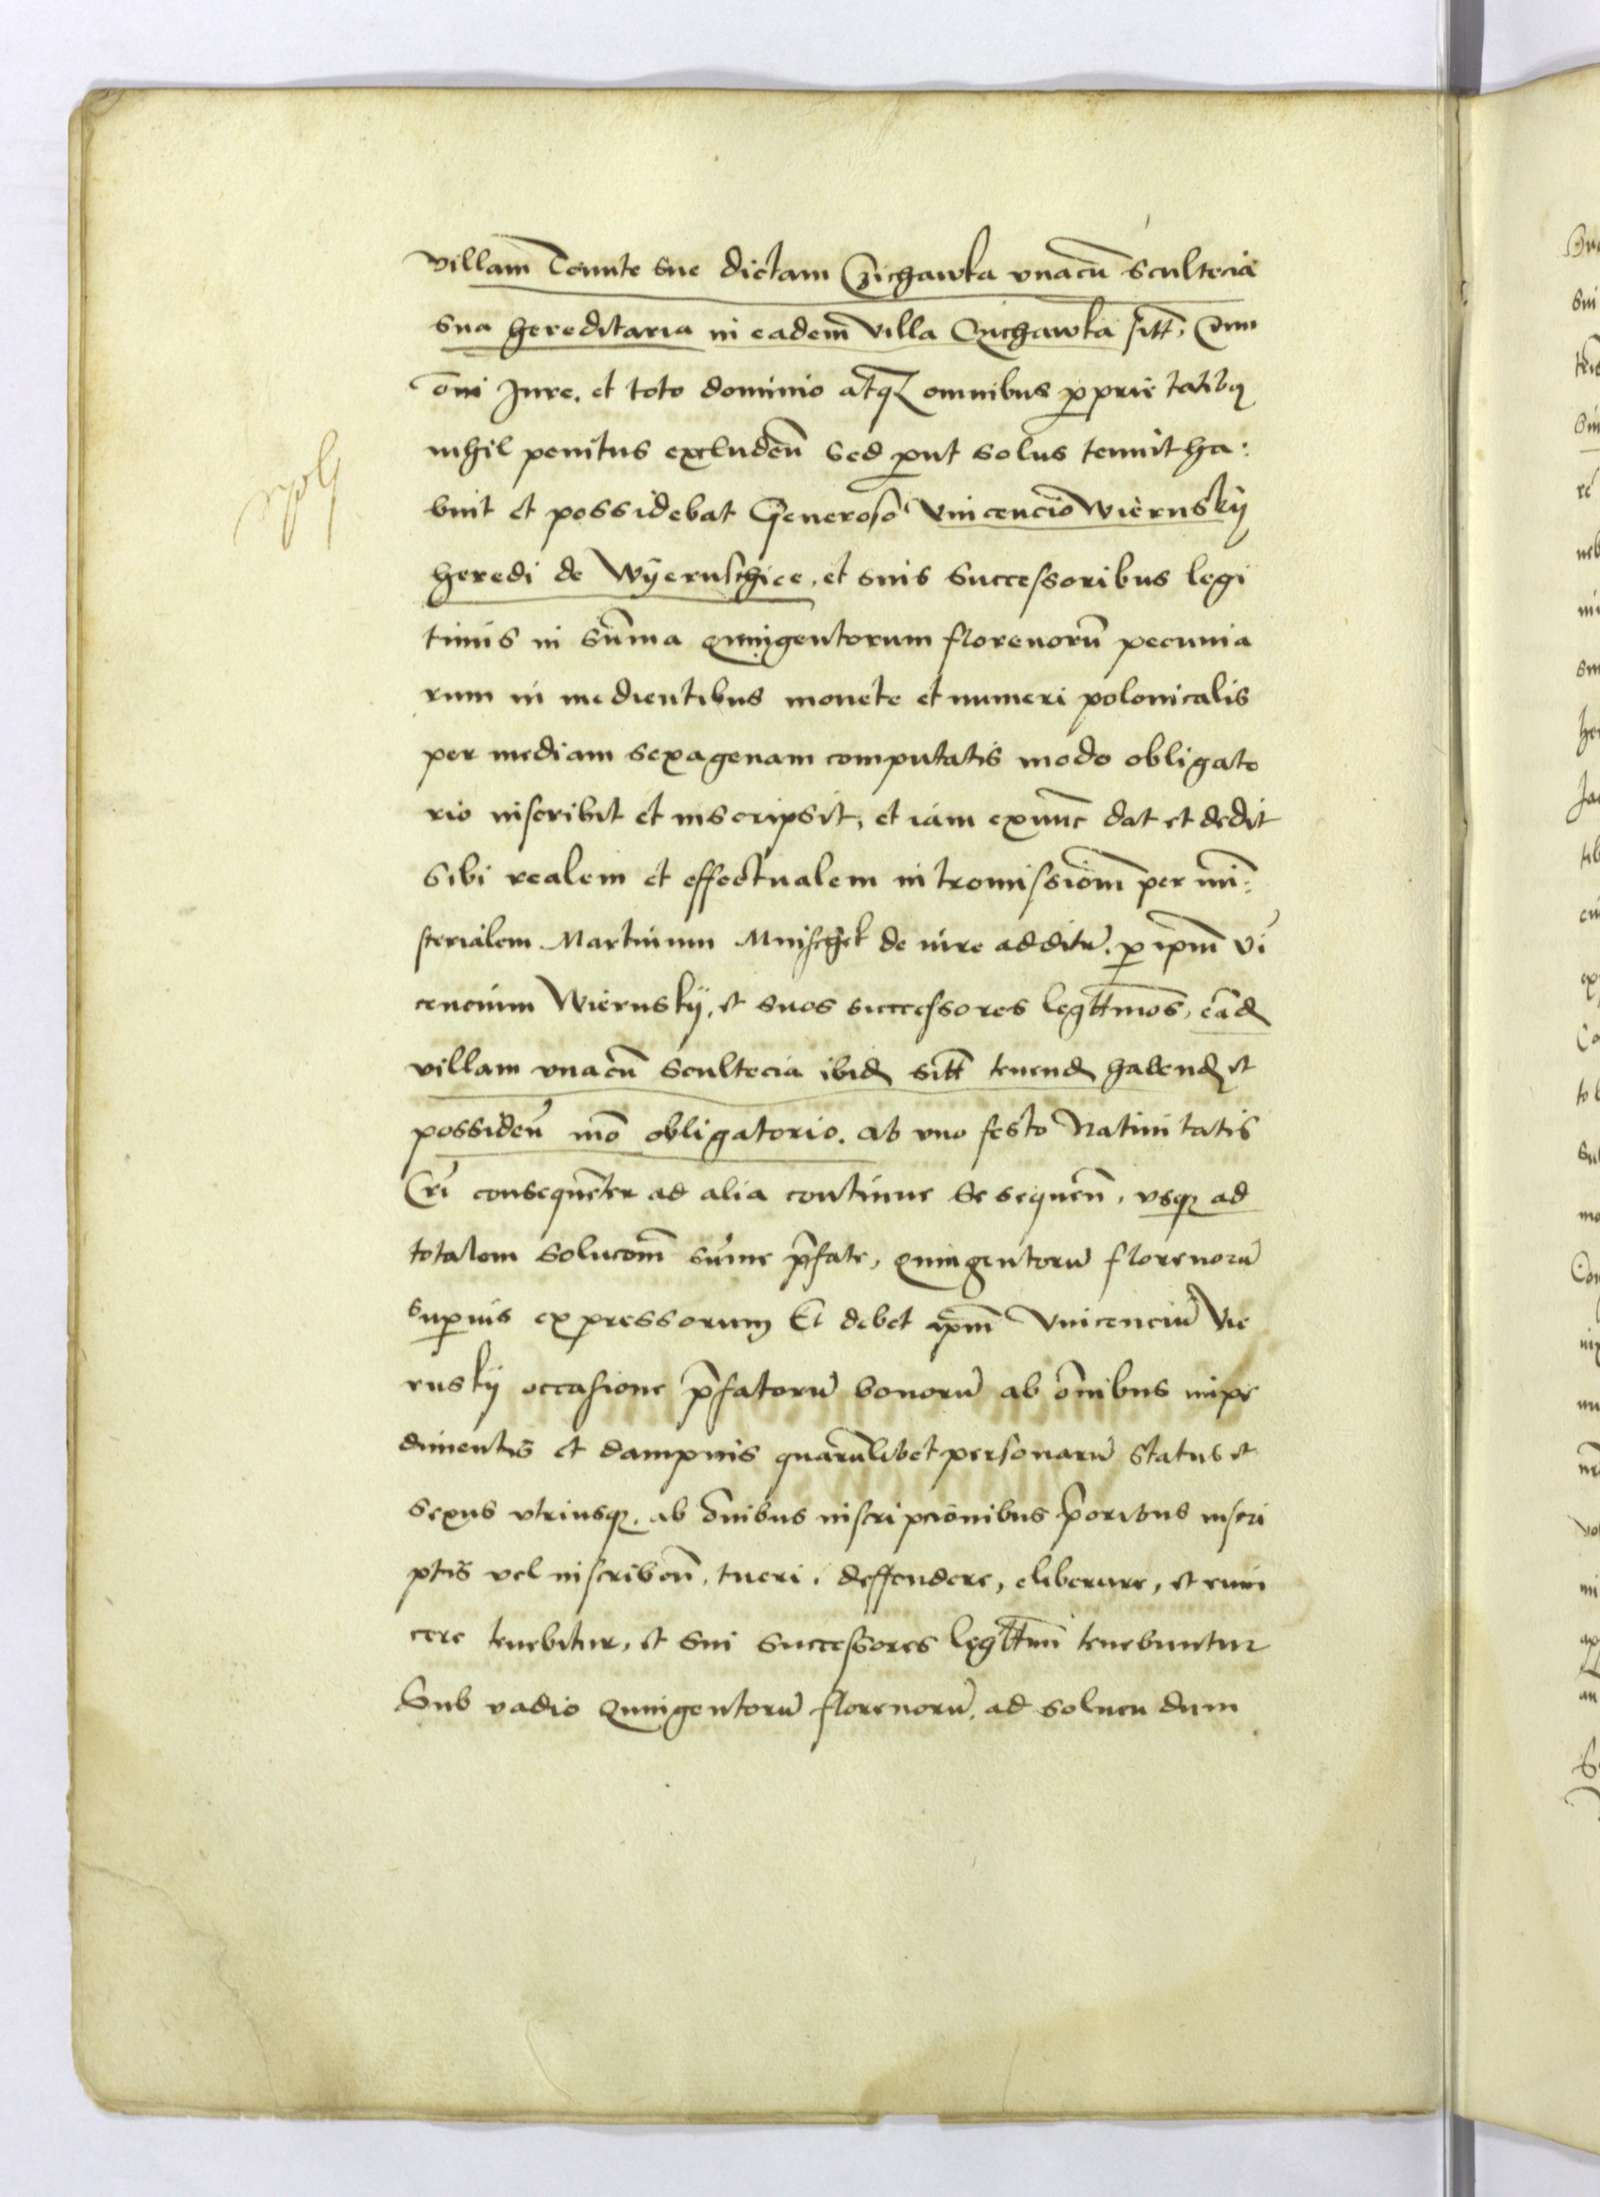 villam Tenute sue dictam Czichawka vnacū scultecia
sua hereditaria in eadem villa Czichawka sitt̄, Cum
om̄i Jure, et toto dominio atq̨ omnibus ꝓprie tatibꝫ
nihil penitus excluden̄ sed ꝓut solus tenuit ha:
buit et possidebat Generoso Vincencio Wiernskij
heredi de Wÿernschice, et suis successoribus legi
timis in sūma quingentorum florenorū pecunia
rum in medientibus monete et numeri polonicalis
per mediam sexagenam computatis modo obligato
rio inscribit et inscripsit, et iam exnunc dat et dedit
sibi realem et effectualem in tromissiōm per mī:
sterialem Martinum Mnischek de iure additū, p̱ ip̄m Vī
cencium Wiernskij, et suos successores legtt̄mos, eād
villam vnacū scultecia ibid sitt̄ tenend habend et
possiden̄ mō obligatorio, ab vno festo Natiui tatis
Cri consequēter ad alia continue se sequen̄, vsqꝫ ad
totalem solucōm sūme p̄fate, quingentorū florenorū
sup̱ius ex pressorum Et debet ip̄m Vincenciū Vie
rnskij occasione p̄fatorū bonorū ab ōnibus impe
dimentis et dampnis quarūlibet personarū status et
sexus vtriusqꝫ, ab ōnibus inscripcionibus p̄oribus inscri
ptis vel inscriben̄, tueri, deffendere, eliberare, et euin
cere tenebitur, et sui successores legtt̄mi tenebuntur
Sub vadio Quingentorū florenorū, ad soluen dum